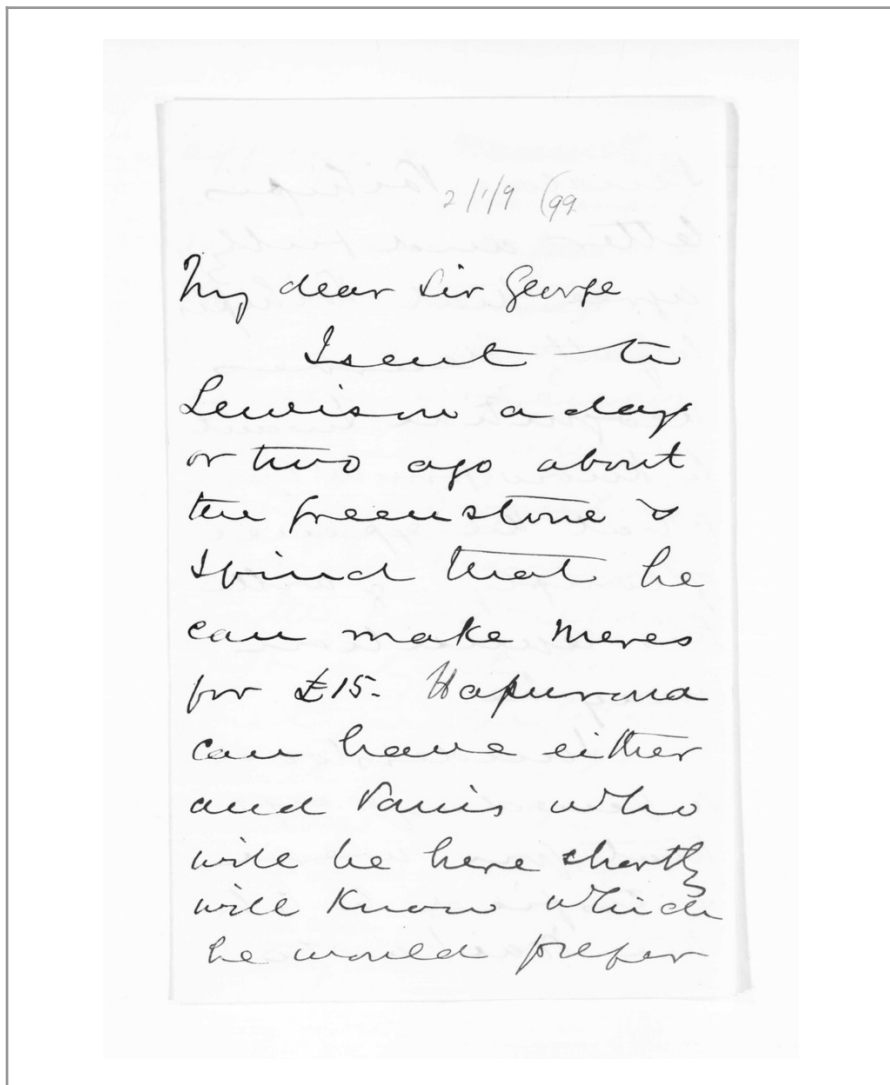 2/1/9 (99
My dear Sir George
I sent to
Lewison a day
or two ago about
the greenstone &
I find that he
can make meres
for £15. Hapurona
can have either
and Parris who
will be here shortly
will know which
he would prefer